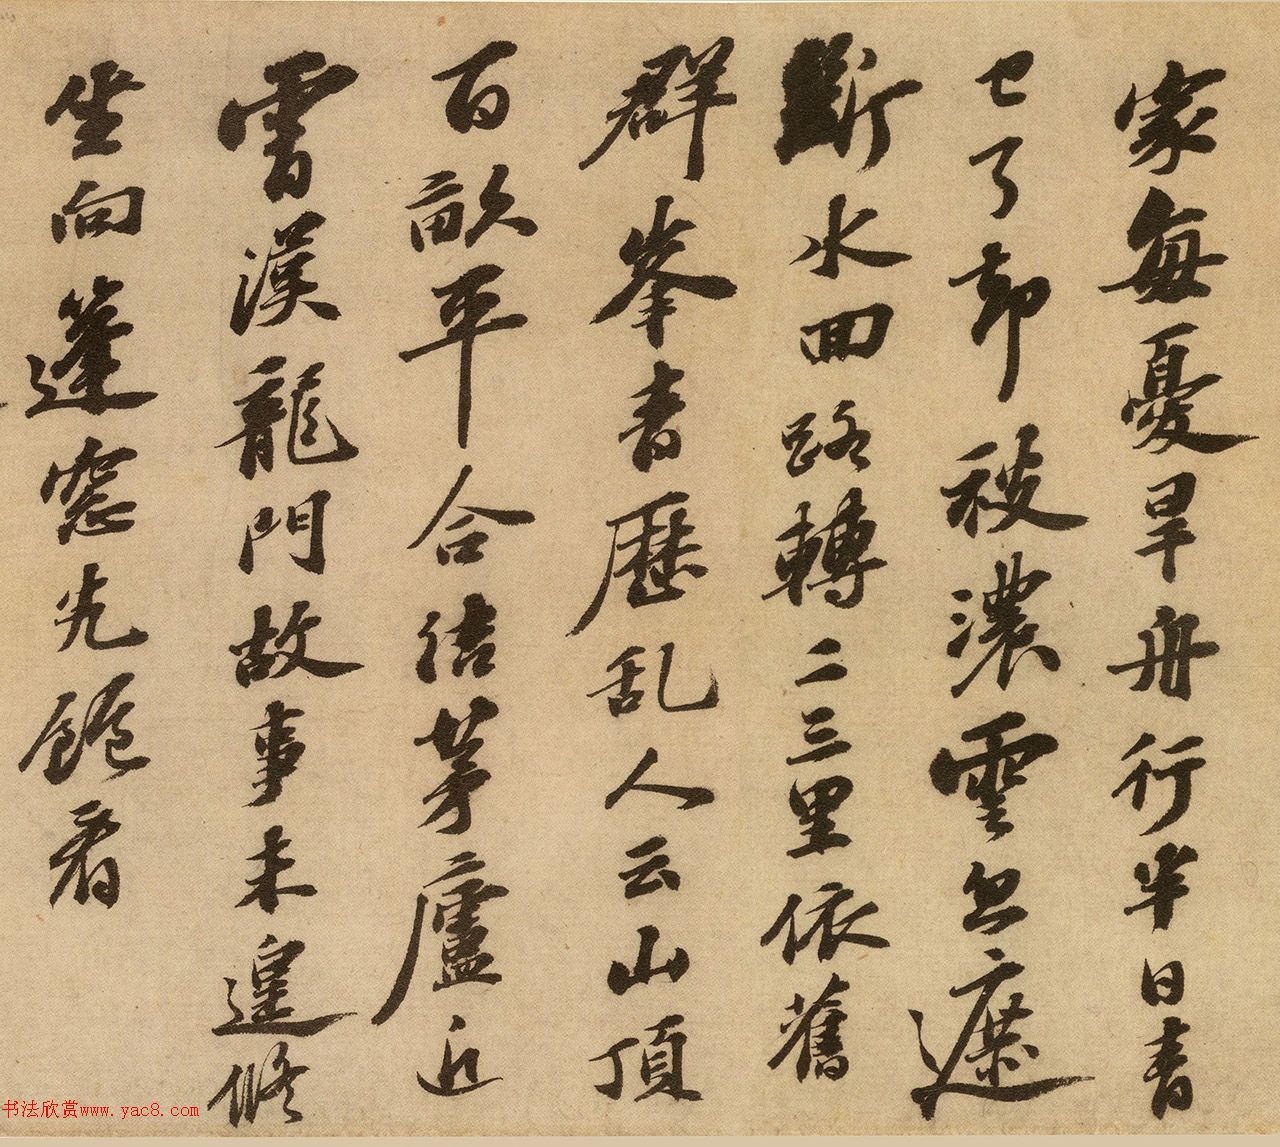 家每憂旱舟行半日青
已了却被濃雲忽遮
斷水回路轉二三里依舊
群峯青歷乱人云山頂
百畝平合結茅廬近
霄漢龍門故事未遑修
坐向蓬窓先飽看
书法欣赏www.yac8.com